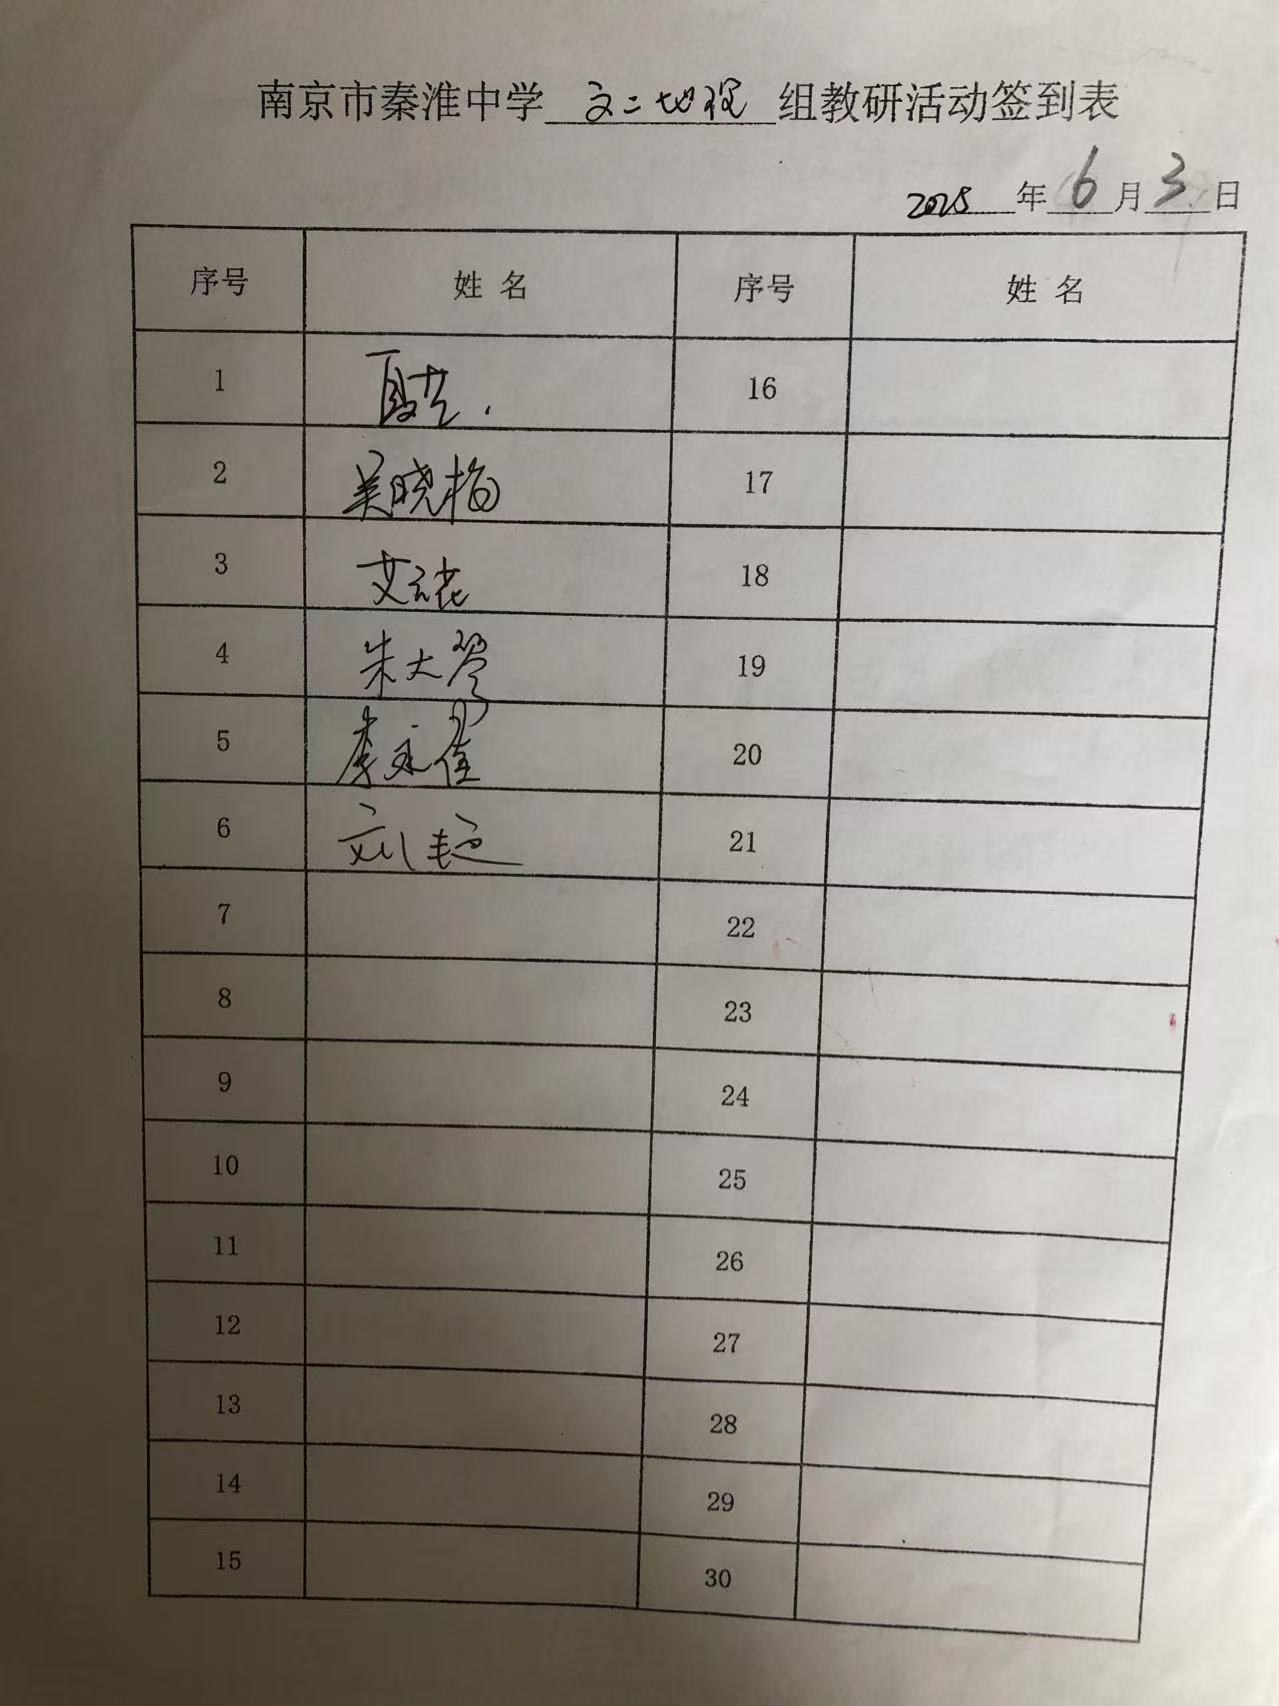 南京市秦淮中学 高二地理 组教研活动签到表
2025 年 6 月 3 日
序号 姓 名 序号 姓 名
1 16
2 吴晓梅 17
3 艾云花 18
4 朱大 19
5 李永 20
6 刘艳 21
7 22
8 23
9 24
10 25
11 26
12 27
13 28
14 29
15 30